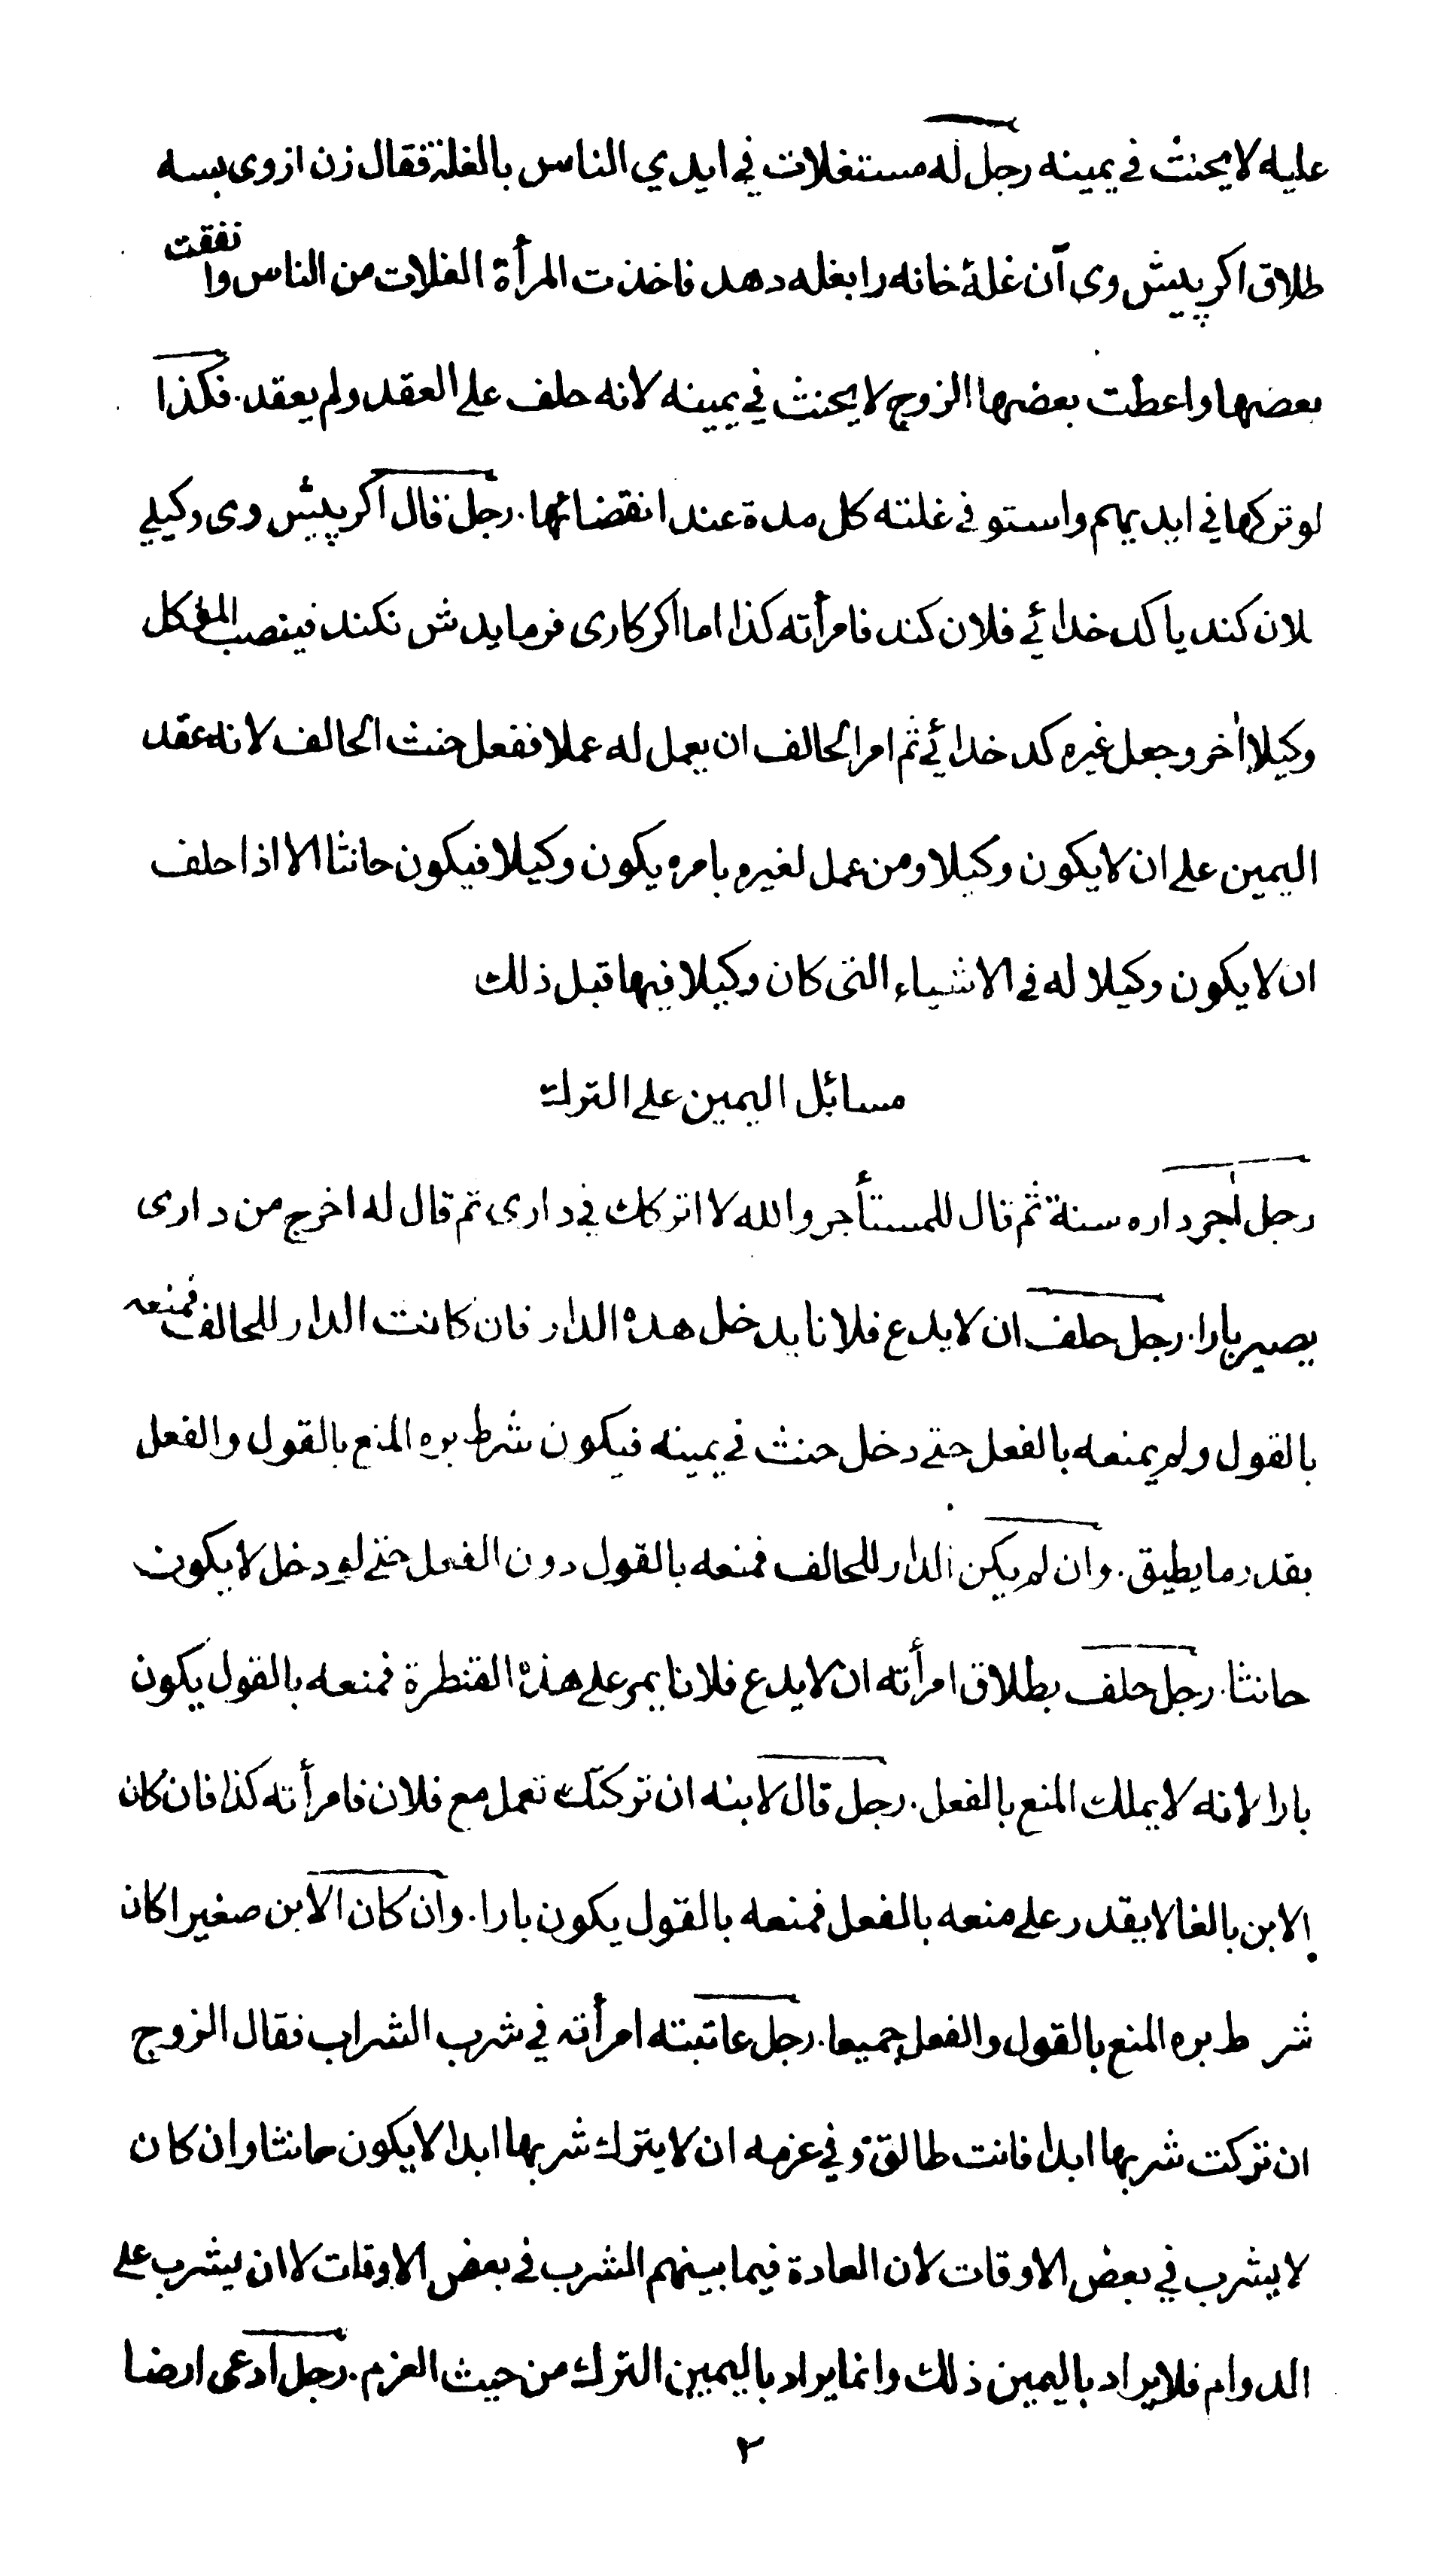 عليه لا يحنث في يمينه رجل له مستغلات في ايدي الناس بالغلة فقال زن از وى بسه
طلاق اكر پيش وى آن غلهٔ خانه را بغله دهد فاخذت المرأة الغلات من الناس وانفقت
بعضها واعطت بعضها الزوج لا يحنث في يمينه لانه حلف على العقد ولم يعقد. فكذا
لو تركها في ايديهم واستوفى غلته كل مدة عند انقضائها. رجل قال اكر پيش وى وكيلي
لان كند يا كد خدائي فلان كند فامرأته كذا اما اكر كارى فرمايدش نكند فينصب المؤكل
وكيلا اٰخر وجعل غيره كد خدائي ثم امر الحالف ان يعمل له عملا ففعل حنث الحالف لانه عقد
اليمين على ان لا يكون وكيلا ومن عمل لغيره بامره يكون وكيلا فيكون حانثا الا اذا حلف
ان لا يكون وكيلا له في الاشياء التى كان وكيلا فيها قبل ذلك
مسائل اليمين على الترك
رجل اٰجر داره سنة ثم قال للمستأجر والله لا اتركك في دارى ثم قال له اخرج من دارى
يصير بارا. رجل حلف ان لا يدع فلانا يدخل هذه الدار فان كانت الدار للحالف فمنعه
بالقول ولم يمنعه بالفعل حتى دخل حنث في يمينه فيكون شرط بره المنع بالقول والفعل
بقدر ما يطيق. وان لم يكن الدار للحالف فمنعه بالقول دون الفعل حتى لو دخل لا يكون
حانثا. رجل حلف بطلاق امرأته ان لا يدع فلانا يمر على هذه القنطرة فمنعه بالقول يكون
بارا لانه لا يملك المنع بالفعل. رجل قال لابنه ان تركتك تعمل مع فلان فامرأته كذا فان كان
الابن بالغا لا يقدر على منعه بالفعل فمنعه بالقول يكون بارا. وان كان الابن صغيرا كان
شرط بره المنع بالقول والفعل جميعا. رجل عاتبته امرأته في شرب الشراب فقال الزوج
ان تركت شربها ابدا فانت طالق وفي عزمه ان لا يترك شربها ابدا لا يكون حانثا وان كان
لا يشرب في بعض الاوقات لان العادة فيما بينهم الشرب في بعض الاوقات لا ان يشرب على
الدوام فلا يراد باليمين ذلك وانما يراد باليمين الترك من حيث العزم. رجل ادعى ارضا
٢